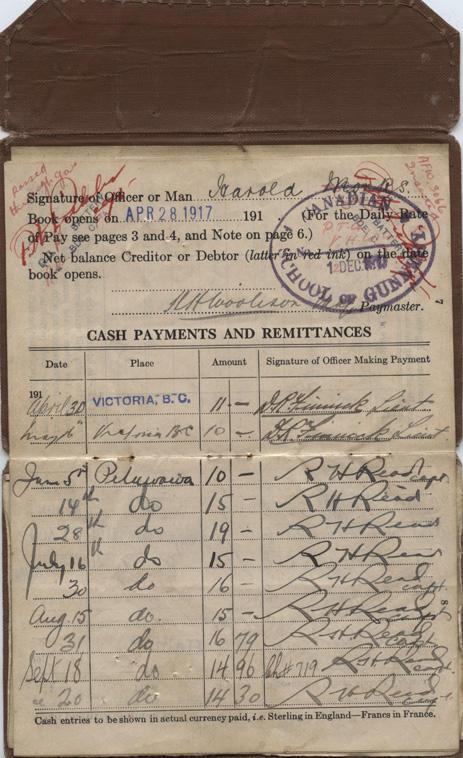 Passed
through Gas
AFW 3066
Signature of Officer or Man Harold Monks.
Book opens on APR 28 1917 191 (For the Daily Rate
of Pay see pages 3 and 4, and Note on page 6.)
Net balance Creditor or Debtor (latter in red ink) on the date
book opens.
CANADIAN
1 DEC
SCHOOL OF GUNNERY
Paymaster.
7
CASH PAYMENTS AND REMITTANCES
Date Place Amount Signature of Officer Making Payment
191
April 30 VICTORIA, B.C. 11 — Lieut
May 6th Victoria BC 10 — Lieut
Jun 5th Petawawa 10 — R H Read Capt
14th do 15 — R H Read
28th do 19 — R H Read
July 16th do 15 — R H Read
30 do 16 — R H Read Capt
8
Aug. 15 do. 15 — R H Read Capt
31 do 16 79 R H Read Capt
Sept 18 do 14 96 Ch# 719 R H Read Capt
" 20 do 14 30 R H Read Capt
Cash entries to be shown in actual currency paid, i.e. Sterling in England—Francs in France.